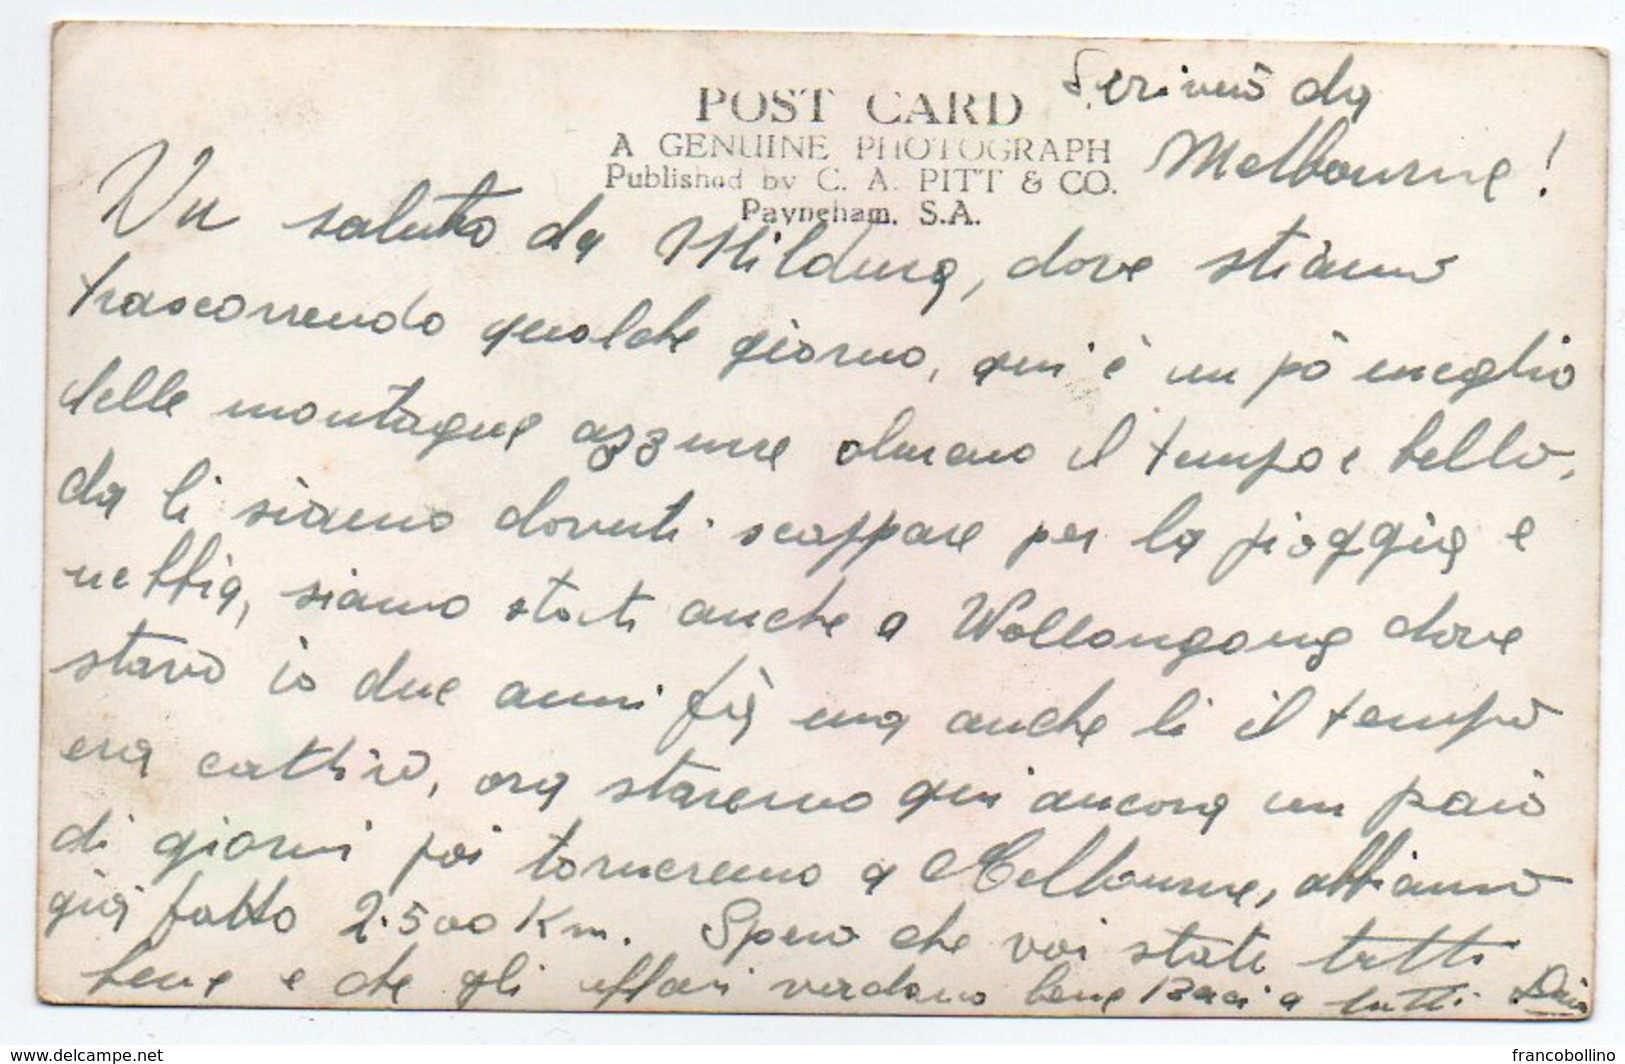 Scriverò da
Melbourne!
POST CARD
A GENUINE PHOTOGRAPH
Published by C. A. PITT & CO.
Payneham. S.A.
Un saluto da Mildura, dove stiamo
trascorrendo qualche giorno, qui è un pò meglio
delle montagne azzurre almeno il tempo e bello,
da li siamo dovuti scappare per la pioggia e
nebbia, siamo stati anche a Wollongong dove
stavo io due anni fà ma anche li il tempo
era cattivo, ora staremo qui ancora un paio
di giorni poi torneremo a Melbourne, abbiamo
già fatto 2.500 Km. Spero che voi state tutti
bene e che gli affari vardano bene Baci a tutti
francobollino